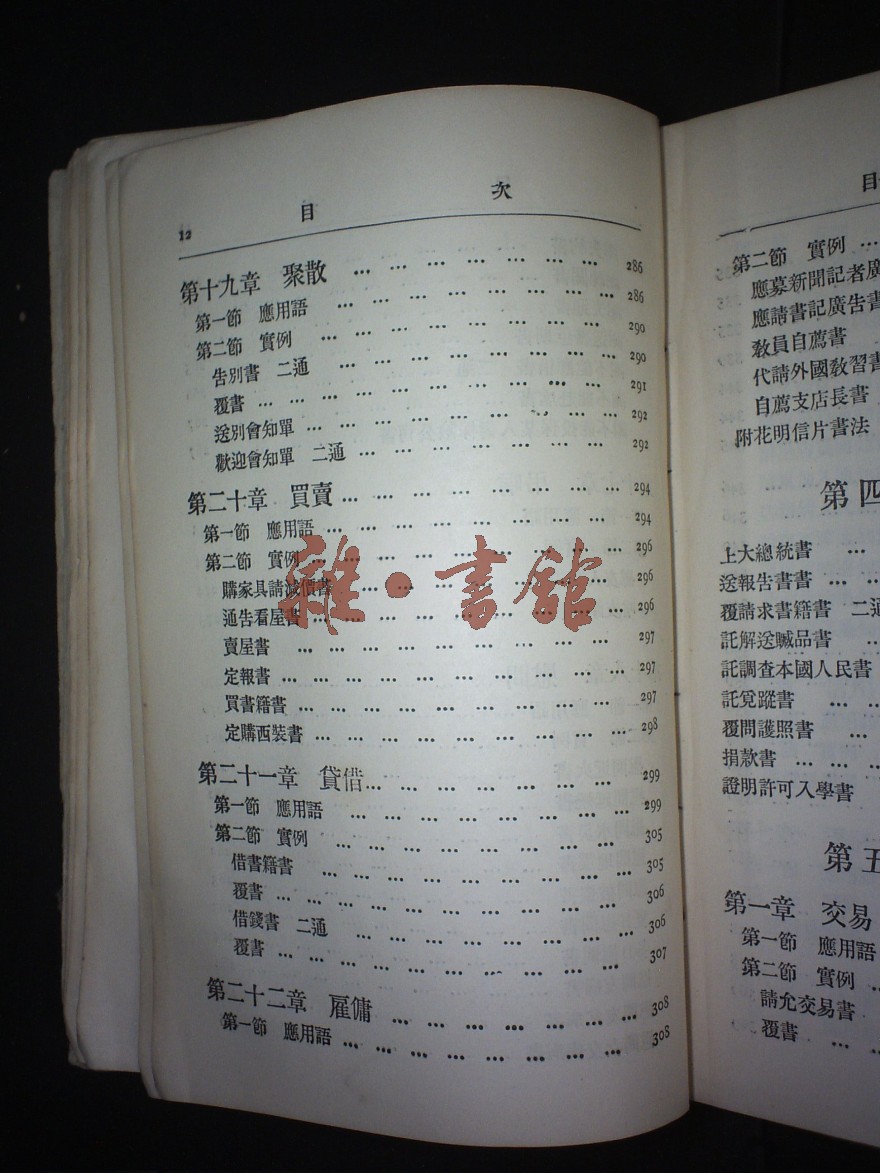 12 目 次
第十九章 聚散 … … … … … … … 286
第一節 應用語 … … … … … … … … 286
第二節 實例 … … … … … … … … 290
告別書 二通 … … … … … … … … 290
覆書 … … … … … … … … … 291
送別會知單 … … … … … … … … 292
歡迎會知單 二通 … … … … … … … 292
第二十章 買賣 … … … … … … … … 294
第一節 應用語 … … … … … … … … 294
第二節 實例 … … … … … … … … 296
購家具請減價書 … … … … … … … 296
通告看屋書 … … … … … … … … 296
賣屋書 … … … … … … … … 297
定報書 … … … … … … … … 297
買書籍書 … … … … … … … … 297
定購西裝書 … … … … … … … … 298
第二十一章 貸借 … … … … … … … 299
第一節 應用語 … … … … … … … … 299
第二節 實例 … … … … … … … … 305
借書籍書 … … … … … … … … 305
覆書 … … … … … … … … … 306
借錢書 二通 … … … … … … … 306
覆書 … … … … … … … … … 307
第二十二章 雇傭 … … … … … … … 308
第一節 應用語 … … … … … … … … 308
雜·書館
目
第二節 實例 …
應募新聞記者廣
應請書記廣告書
敎員自薦書
代請外國敎習書
自薦支店長書
附花明信片書法
第四
上大總統書 …
送報告書書 … …
覆請求書籍書 二通
託解送贓品書 …
託調查本國人民書
託覓蹤書 … …
覆問護照書 …
捐款書 … …
證明許可入學書
第五
第一章 交易
第一節 應用語
第二節 實例 …
請允交易書
覆書 … …